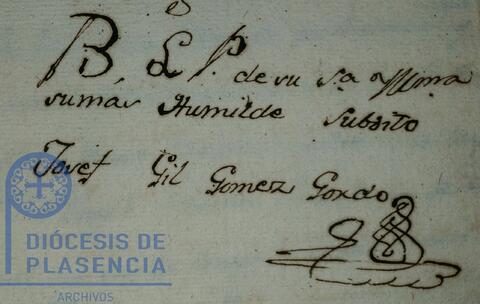 B. L. P. de su S.a Yllma
sumas Humilde Subdito
Josef Gil Gomez Gordo
DIÓCESIS DE
PLASENCIA
ARCHIVOS